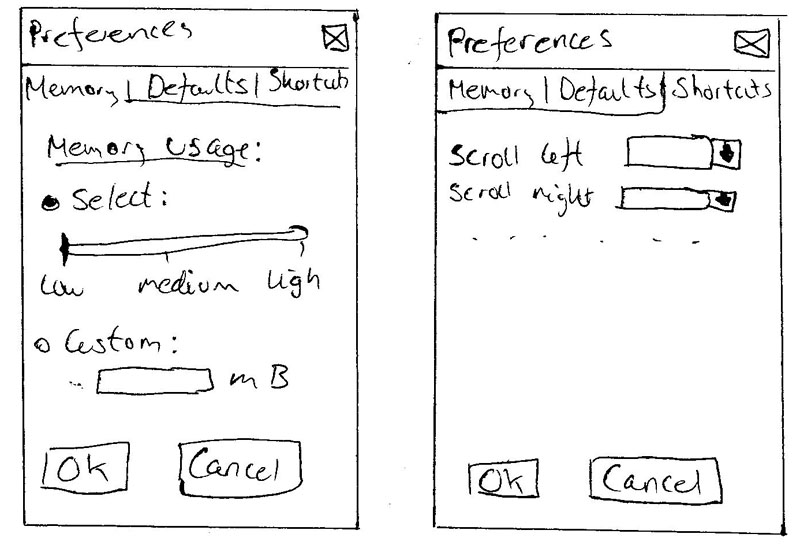 Preferences
Memory | Defaults | Shortcuts
Memory Usage:
Select:
Low medium High
Custom:
mB
Ok Cancel
Preferences
Memory | Defaults Shortcuts
Scroll left
Scroll right
Ok Cancel